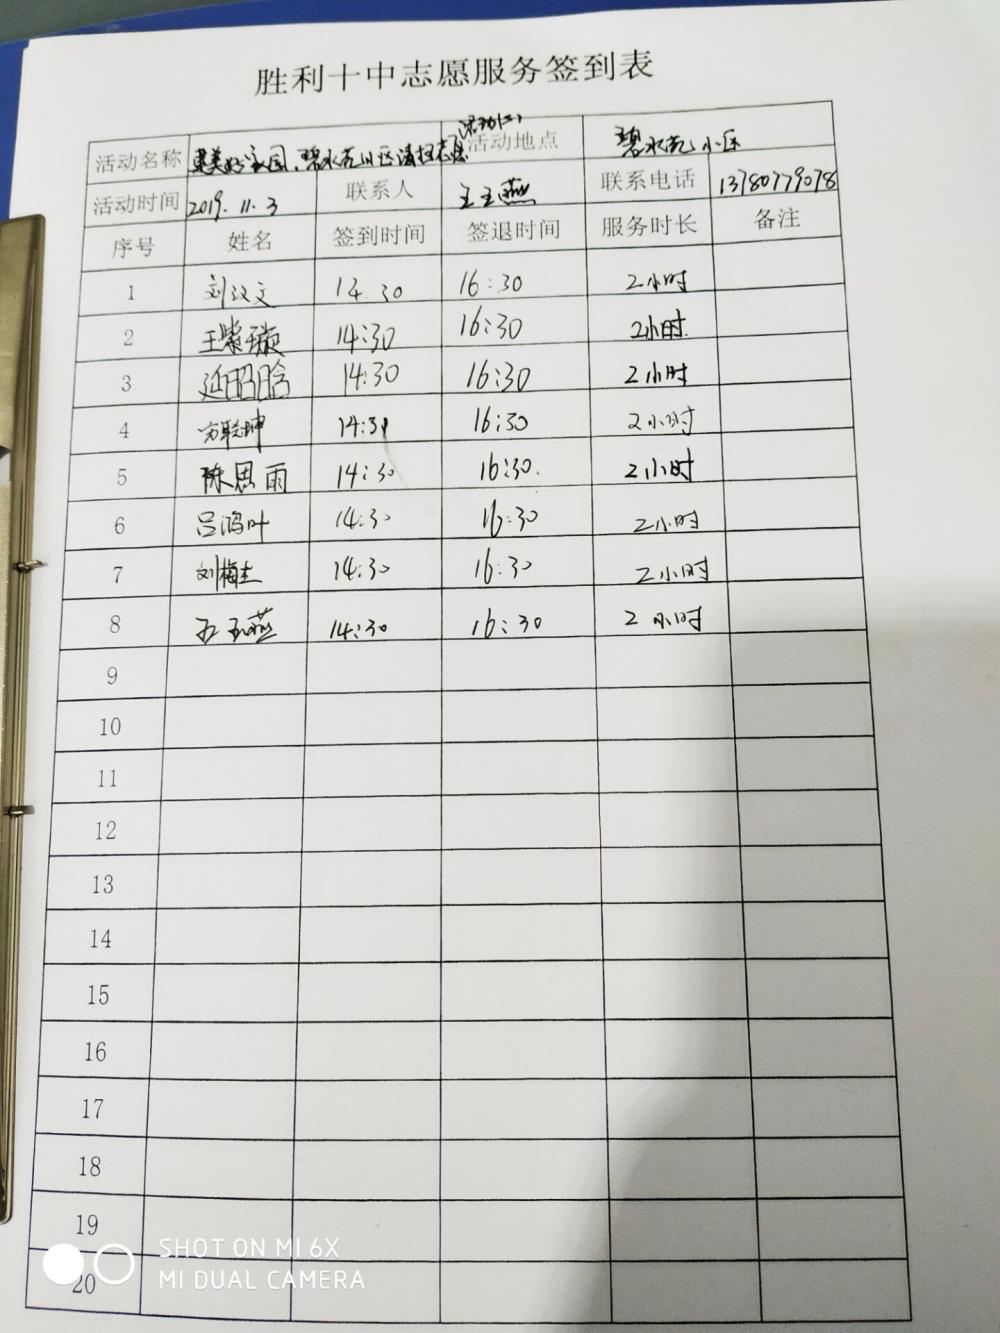 胜利十中志愿服务签到表
活动名称 建美好家园、碧水苑小区清扫志愿活动(二) 活动地点 碧水苑小区
活动时间 2019.11.3 联系人 王玉燕 联系电话 13780779078
序号 姓名 签到时间 签退时间 服务时长 备注
1 刘汉文 14:30 16:30 2小时
2 王紫璇 14:30 16:30 2小时
3 延昭晗 14:30 16:30 2小时
4 14:30 16:30 2小时
5 陈思雨 14:30 16:30. 2小时
6 吕鸿叶 14:30 16:30 2小时
7 刘梅杰 14:30 16:30 2小时
8 王玉燕 14:30 16:30 2小时
9
10
11
12
13
14
15
16
17
18
19
20
SHOT ON MI 6X
MI DUAL CAMERA